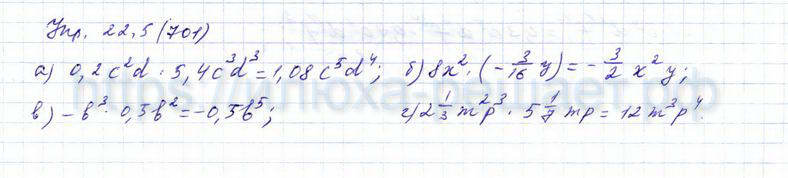 Упр. 22.5 (701)
а) 0,2c²d · 5,4c³d³ = 1,08c⁵d⁴; б) 8x² · (-3/16 y) = -3/2 x²y;
в) -b³ · 0,5b² = -0,5b⁵; г) 2 1/3 m²p³ · 5 1/7 mp = 12m³p⁴.